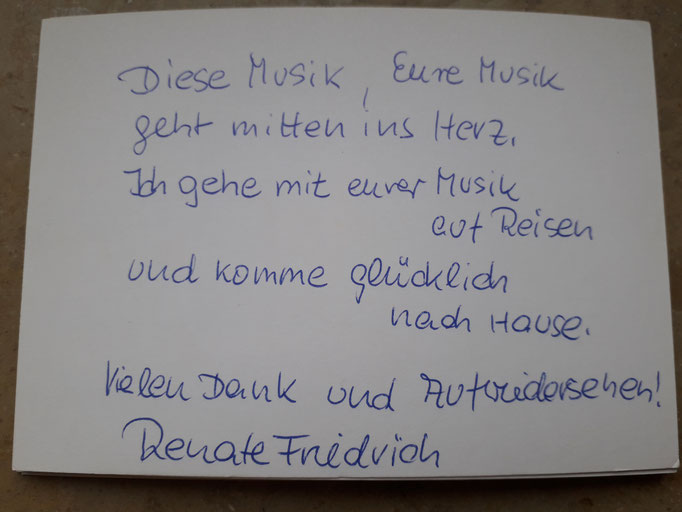 Diese Musik, Eure Musik
geht mitten ins Herz.
Ich gehe mit eurer Musik
auf Reisen
und komme glücklich
nach Hause.
Vielen Dank und Aufwiedersehen!
Renate Friedrich